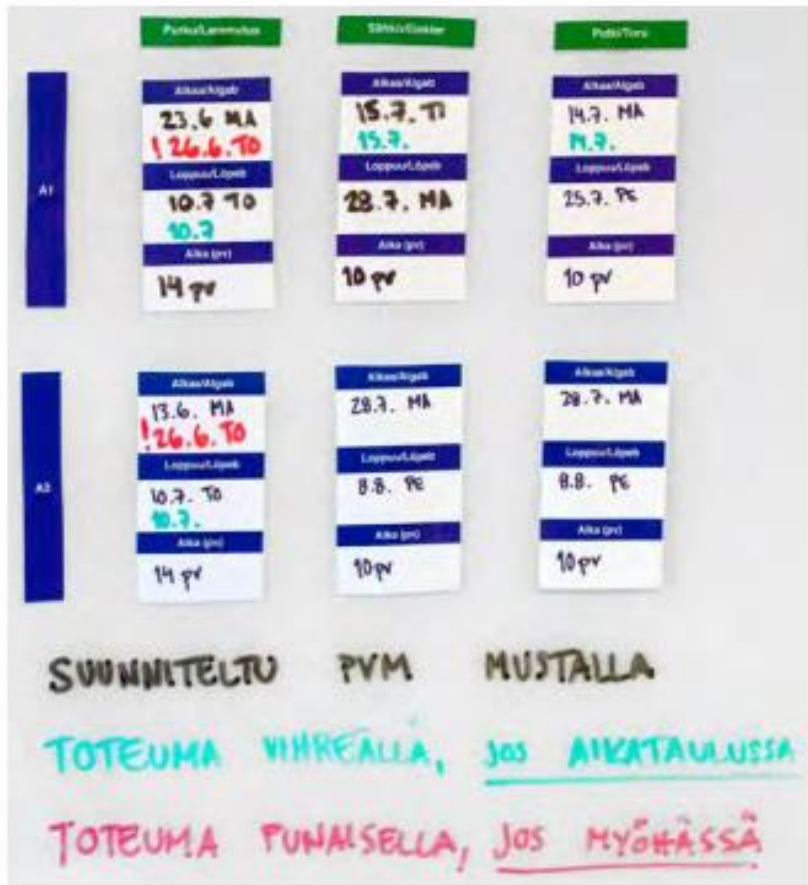 Purku/Lammutus
Sähkö/Elekter
Putki/Toru
A1
Alkaa/Algab
23.6 MA
! 26.6. TO
Loppuu/Lõpeb
10.7 TO
10.7
Aika (pv)
14 pv
Alkaa/Algab
15.7. TI
15.7.
Loppuu/Lõpeb
28.7. MA
Aika (pv)
10 pv
Alkaa/Algab
14.7. MA
14.7.
Loppuu/Lõpeb
25.7. PE
Aika (pv)
10 pv
A2
Alkaa/Algab
13.6. MA
! 26.6. TO
Loppuu/Lõpeb
10.7. TO
10.7.
Aika (pv)
14 pv
Alkaa/Algab
28.7. MA
Loppuu/Lõpeb
8.8. PE
Aika (pv)
10pv
Alkaa/Algab
28.7. MA
Loppuu/Lõpeb
8.8. PE
Aika (pv)
10pv
SUUNNITELTU PVM MUSTALLA
TOTEUMA VIHREÄLLÄ, JOS AIKATAULUSSA
TOTEUMA PUNAISELLA, JOS MYÖHÄSSÄ